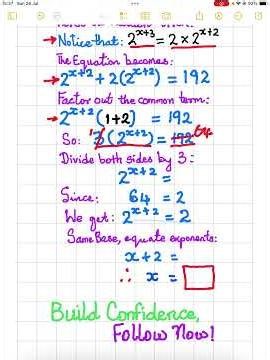 15:37 Sun 26 Jul
→ Notice that: 2^{x+3} = 2 × 2^{x+2}
The Equation becomes:
→ 2^{x+2} + 2(2^{x+2}) = 192
Factor out the common term:
→ 2^{x+2}(1+2) = 192
So: 3(2^{x+2}) = 192 64
Divide both sides by 3:
2^{x+2} =
Since: 64 = 2
We get: 2^{x+2} = 2
Same Base, equate exponents:
x+2 =
∴ x =
Build Confidence,
Follow Now!